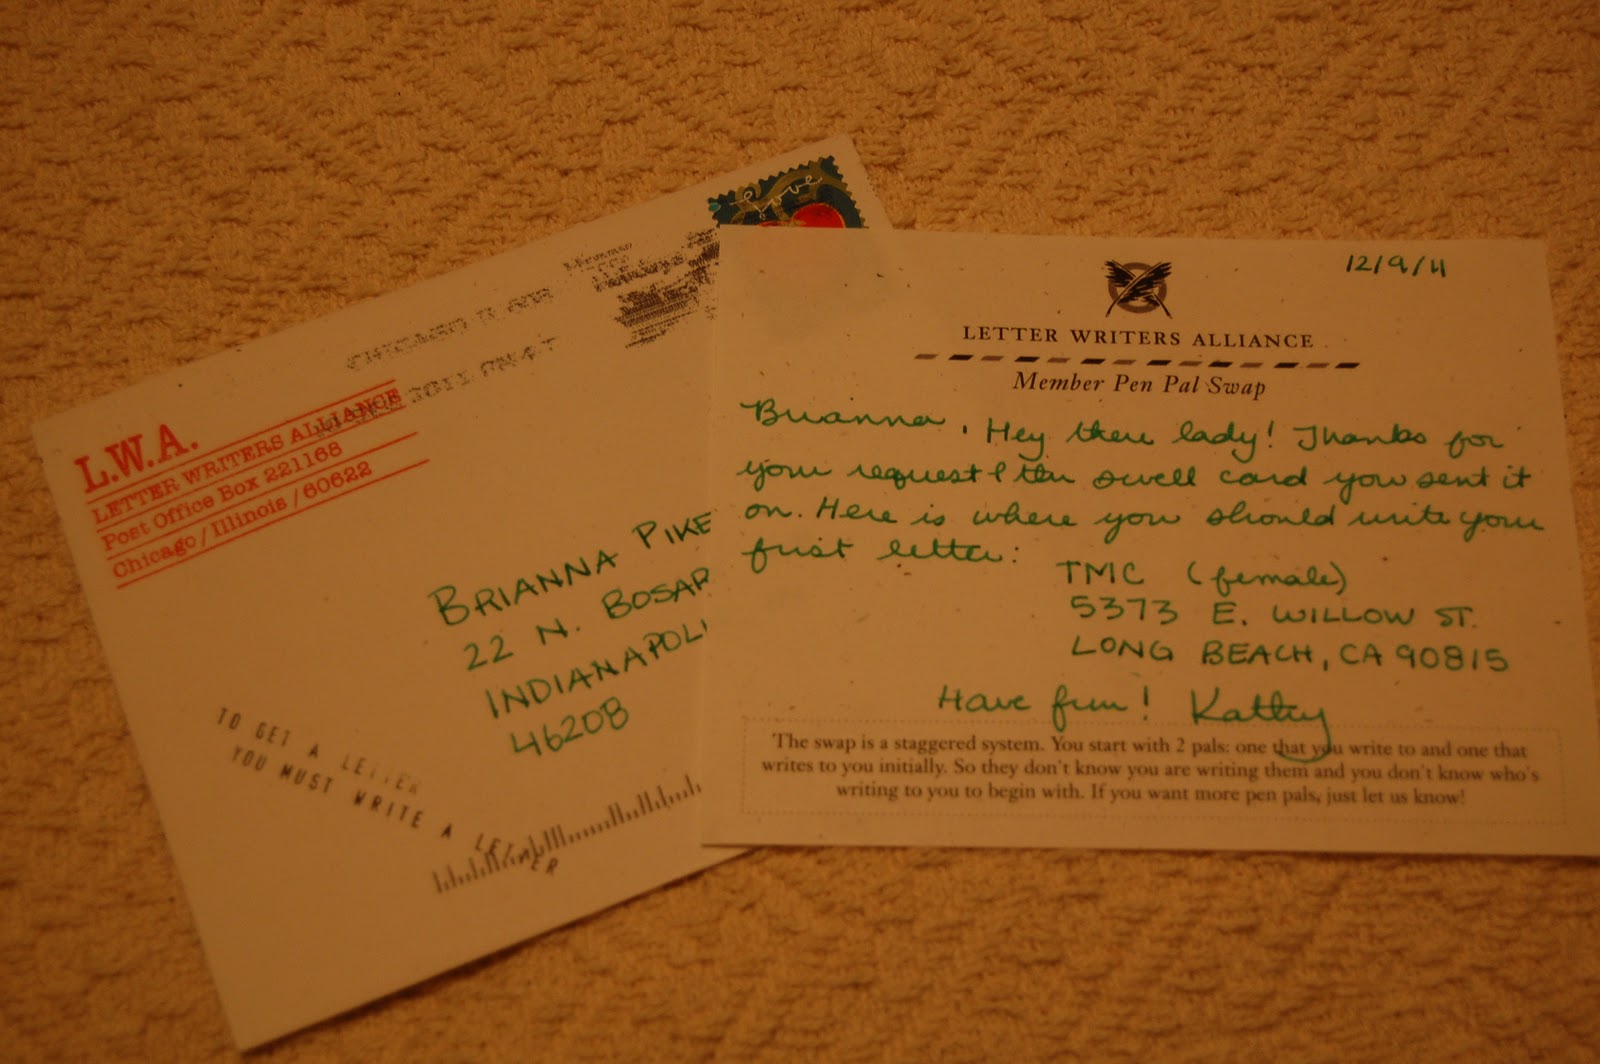 Love
CHICAGO IL 606
2011 PM 4 T
L.W.A.
LETTER WRITERS ALLIANCE
Post Office Box 221168
Chicago / Illinois / 60622
BRIANNA PIKE
22 N. BOSAR
INDIANAPOLI
46208
TO GET A LETTER
YOU MUST WRITE A LETTER
12/9/11
LETTER WRITERS ALLIANCE
Member Pen Pal Swap
Brianna, Hey there lady! Thanks for
your request & the swell card you sent it
on. Here is where you should write your
first letter:
TMC (female)
5373 E. WILLOW ST.
LONG BEACH, CA 90815
Have fun! Kathy
The swap is a staggered system. You start with 2 pals: one that you write to and one that
writes to you initially. So they don't know you are writing them and you don't know who's
writing to you to begin with. If you want more pen pals, just let us know!